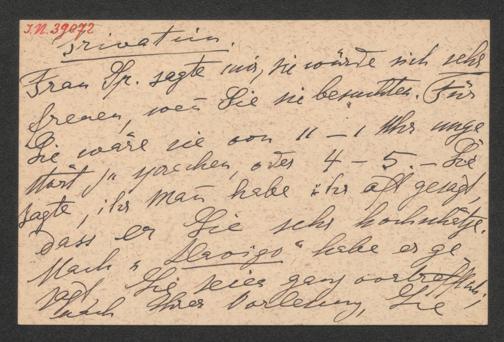 I.N. 39072
Privatim.
Frau Dr. sagte mir, sie würde sich sehr
freuen, wen̄ Sie sie besuchten. Für
Sie wäre sie von 11 – 1 Uhr unge
stört zu sprechen, oder 4 – 5. – Sie
sagte, ihr Man̄ habe ihr oft gesagt
dass er Sie sehr hochschätze.
Nach " " habe er ge
sagt, Sie seien ganz vortrefflich.
nach Ihrer Vorlesung, Sie